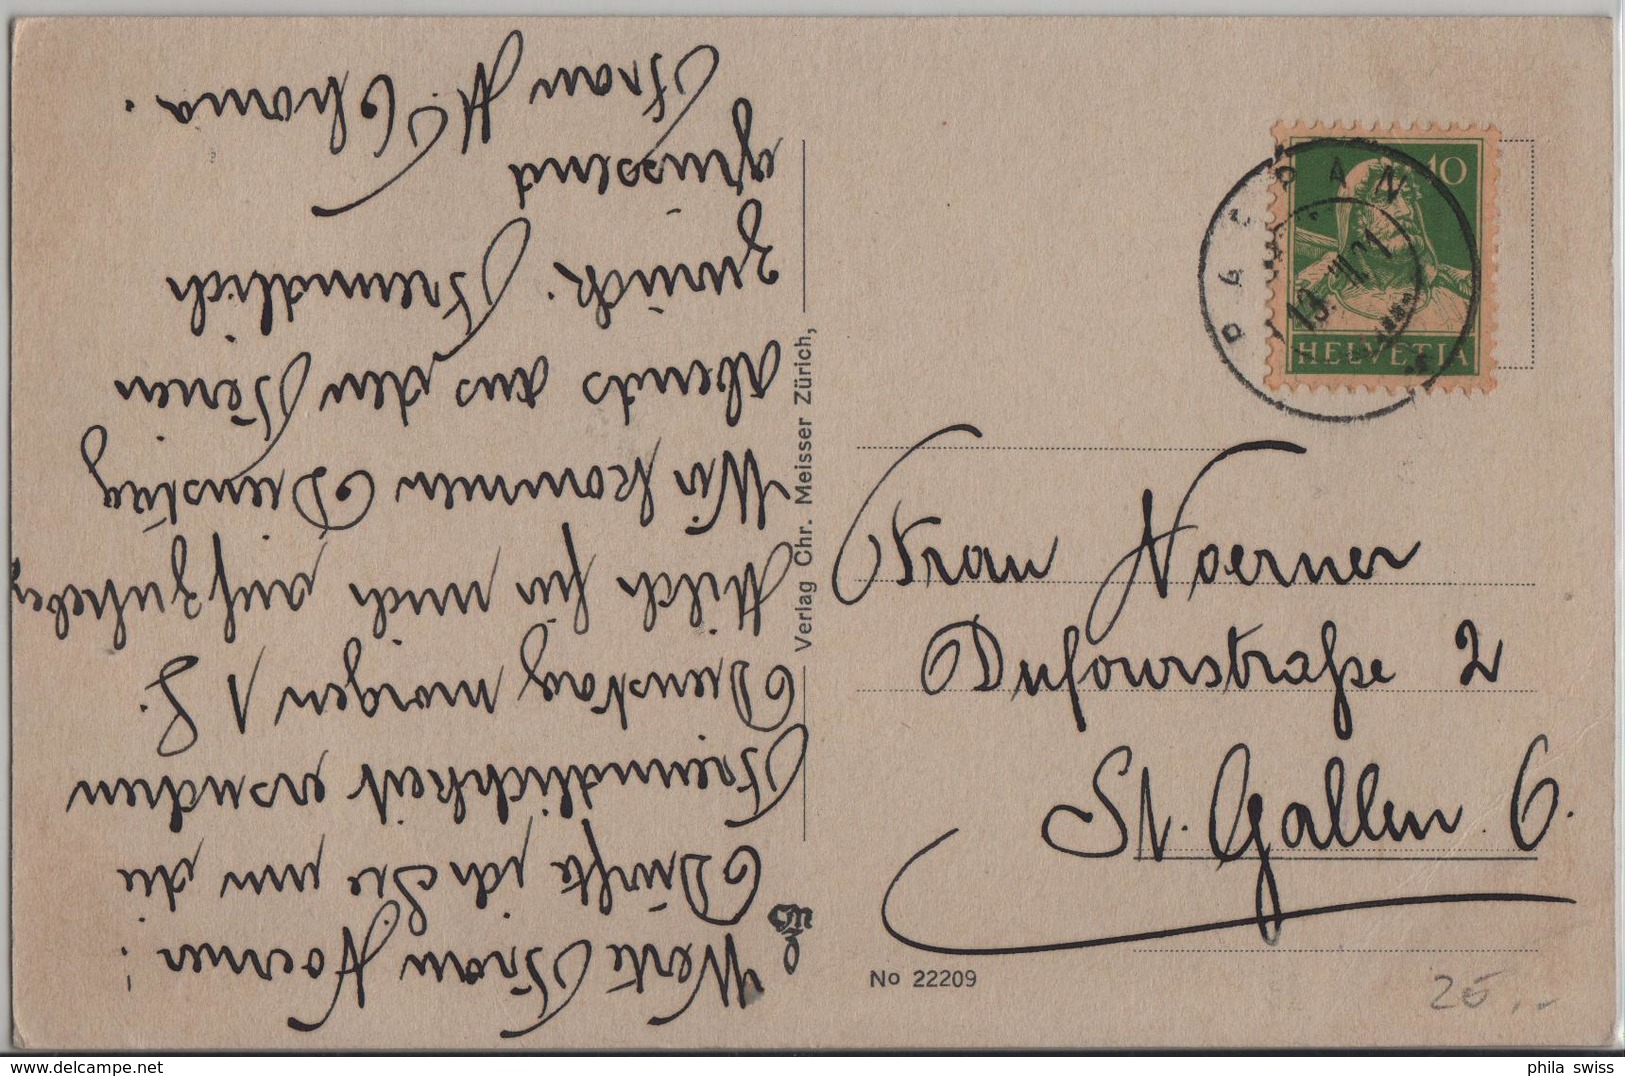 Werte Frau Noerner!
Dürfte ich Sie um die
Freundlichkeit ersuchen
Dienstag morgen 1 L.
Milch für mich aufzuheben
Wir kommen Dienstag
abends aus den Ferien
zurück. Freundlich
grüssend
Frau A. Thoma.
Verlag Chr. Meisser Zürich,
PAN
13. VII. 21
10
HELVETIA
Frau Noerner
Dufourstraße 2
St. Gallen. O.
No 22209
25.-
phila swiss